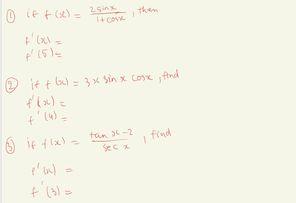 ① if f(x) = 2 sinx / 1+cosx , then
f'(x) =
f'(5) =
② if f(x) = 3x sin x cosx, find
f'(x) =
f'(4) =
③ if f(x) = tan x-2 / sec x , find
f'(x) =
f'(3) =